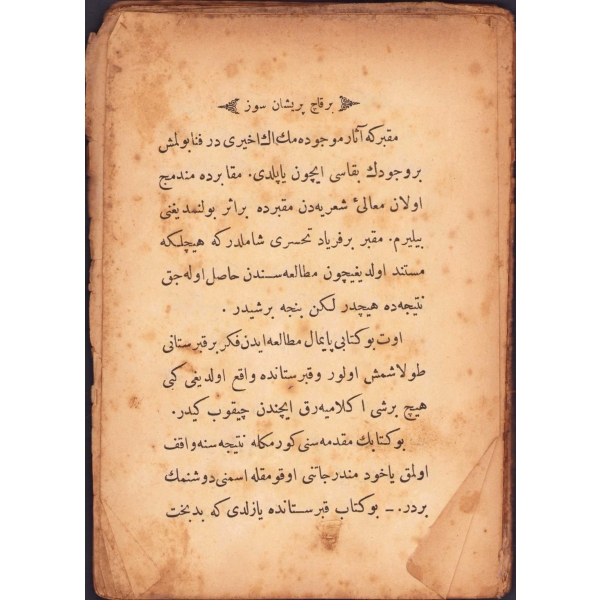 برقاچ پریشان سوز
مقبركه آثار موجوده‌مك اك اخیری در فنابولمش
بروجودك بقاسی ایچون یاپلدی. مقابرده مندمج
اولان معالئ شعریه‌دن مقبرده براثر بولنمدیغنی
بیلیرم. مقبر برفریاد تحسری شاملدركه هیچلكه
مستند اولدیغیچون مطالعه‌سندن حاصل اوله‌جق
نتیجه‌ده هیچدر لكن بنجه برشیدر .
اوت بوكتابی پایمال مطالعه ایدن فكر برقبرستانی
طولاشمش اولور وقبرستانده واقع اولدیغی كبی
هیچ برشی اكلامیه‌رق ایچندن چیقوب كیدر.
بوكتابك مقدمه‌سنی كورمكله نتیجه‌سنه واقف
اولمق یاخود مندرجاتنی اوقومقله اسمنی دوشنمك
بردر. ـ بوكتاب قبرستانده یازلدی كه بدبخت